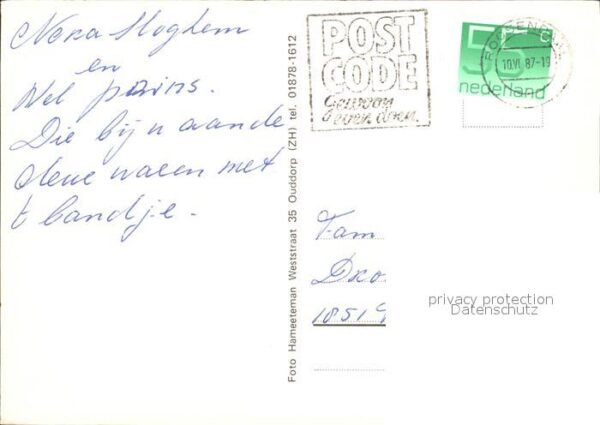 Nora Hoghem
en
Nel prins.
Die bij u aande
deur waren met
t bandje.
Foto Hameeteman Weststraat 35 Ouddorp (ZH) tel. 01878-1612
POST
CODE
Gewoon
even doen.
ROOSENDAAL
10.VI.87-19
55 c
nederland
Fam
privacy protection
Datenschutz